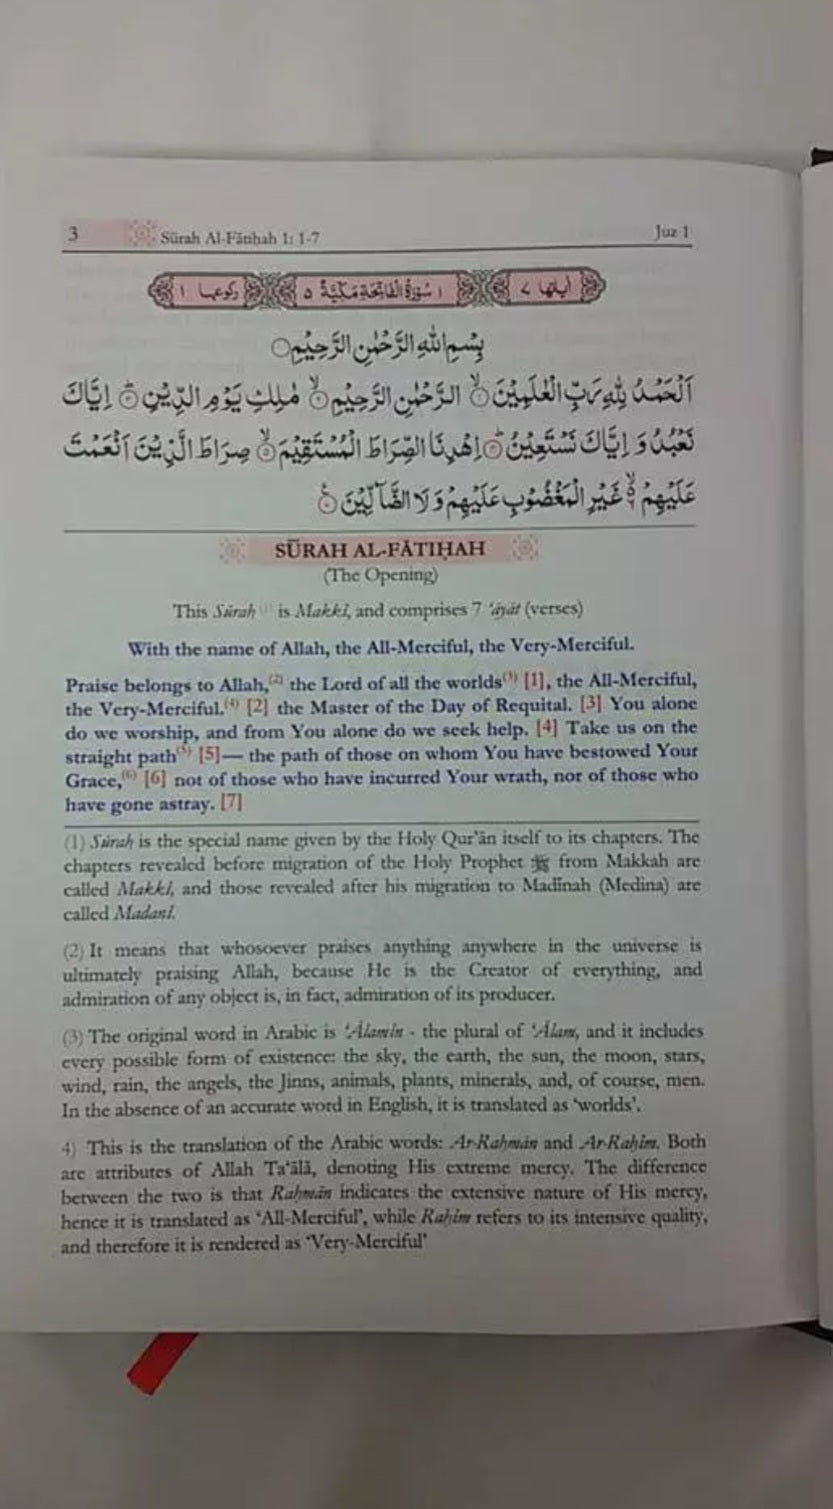 3 Sūrah Al-Fātiḥah 1: 1-7 Juz 1
اٰیاتها ٧ ١ سُوْرَةُ الْفَاتِحَةِ مَكِّيَّةٌ ٥ رکوعها ١
بِسْمِ اللّٰهِ الرَّحْمٰنِ الرَّحِيْمِ
اَلْحَمْدُ لِلّٰهِ رَبِّ الْعٰلَمِيْنَ ۙ الرَّحْمٰنِ الرَّحِيْمِ ۙ مٰلِكِ يَوْمِ الدِّيْنِ ؕ اِيَّاكَ
نَعْبُدُ وَ اِيَّاكَ نَسْتَعِيْنُ ؕ اِهْدِنَا الصِّرَاطَ الْمُسْتَقِيْمَ ۙ صِرَاطَ الَّذِيْنَ اَنْعَمْتَ
عَلَيْهِمْ ۙ۬ غَيْرِ الْمَغْضُوْبِ عَلَيْهِمْ وَ لَا الضَّآلِّيْنَ
SŪRAH AL-FĀTIḤAH
(The Opening)
This Sūrah (1) is Makkī, and comprises 7 'āyāt (verses)
With the name of Allah, the All-Merciful, the Very-Merciful.
Praise belongs to Allah,(2) the Lord of all the worlds(3) [1], the All-Merciful,
the Very-Merciful.(4) [2] the Master of the Day of Requital. [3] You alone
do we worship, and from You alone do we seek help. [4] Take us on the
straight path(5) [5]— the path of those on whom You have bestowed Your
Grace,(6) [6] not of those who have incurred Your wrath, nor of those who
have gone astray. [7]
(1) Sūrah is the special name given by the Holy Qur'ān itself to its chapters. The
chapters revealed before migration of the Holy Prophet ﷺ from Makkah are
called Makkī, and those revealed after his migration to Madīnah (Medina) are
called Madanī.
(2) It means that whosoever praises anything anywhere in the universe is
ultimately praising Allah, because He is the Creator of everything, and
admiration of any object is, in fact, admiration of its producer.
(3) The original word in Arabic is 'Ālamīn - the plural of 'Ālam, and it includes
every possible form of existence: the sky, the earth, the sun, the moon, stars,
wind, rain, the angels, the Jinns, animals, plants, minerals, and, of course, men.
In the absence of an accurate word in English, it is translated as 'worlds'.
4) This is the translation of the Arabic words: Ar-Raḥmān and Ar-Raḥīm. Both
are attributes of Allah Ta'ālā, denoting His extreme mercy. The difference
between the two is that Raḥmān indicates the extensive nature of His mercy,
hence it is translated as 'All-Merciful', while Raḥīm refers to its intensive quality,
and therefore it is rendered as 'Very-Merciful'